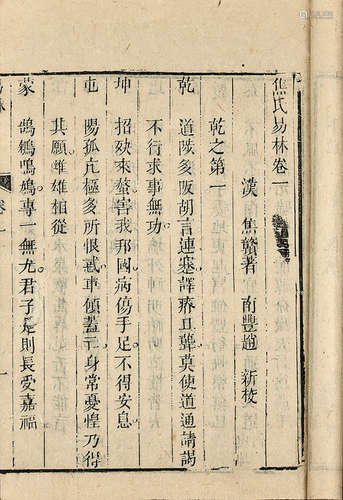 焦氏易林卷一
漢 焦贛著 南豐趙 新校
乾之第一
乾 道陟多阪胡言連蹇譯瘖且聾莫使道通請謁
不行求事無功
坤 招殃來螫害我邦國病傷手足不得安息
屯 陽孤亢極多所恨惑車傾蓋亡身常憂惶乃得
其願雌雄相從
蒙 鵠鵴鳴鳩專一無尤君子是則長受嘉福